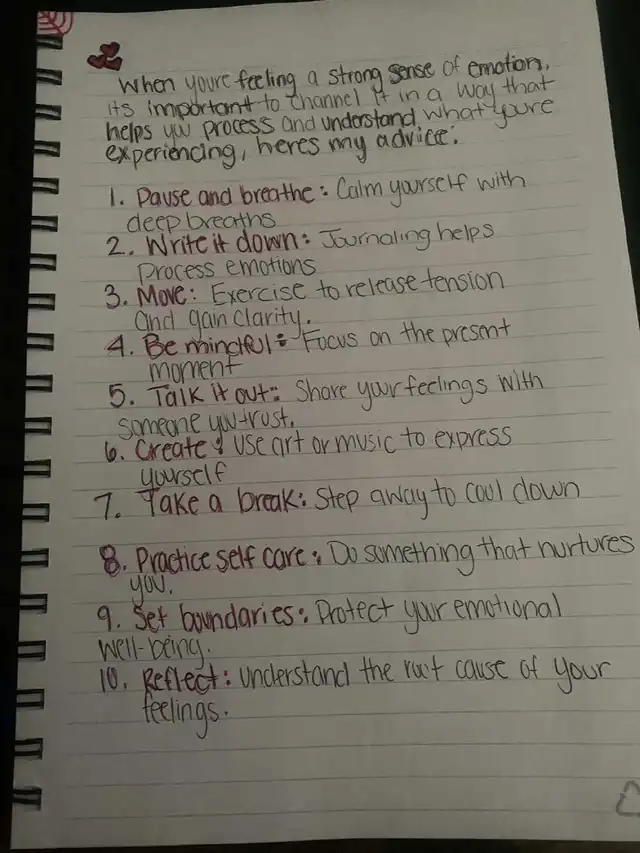 When youre feeling a strong sense of emotion,
its important to channel it in a way that
helps you process and understand what youre
experiencing, heres my advice:
1. Pause and breathe: Calm yourself with
deep breaths
2. Write it down: Journaling helps
process emotions
3. Move: Exercise to release tension
and gain clarity.
4. Be mindful: Focus on the present
moment
5. Talk it out: Share your feelings with
someone you trust.
6. Create: Use art or music to express
yourself
7. Take a break: Step away to cool down
8. Practice self care: Do something that nurtures
you.
9. Set boundaries: Protect your emotional
well-being.
10. Reflect: Understand the root cause of your
feelings.